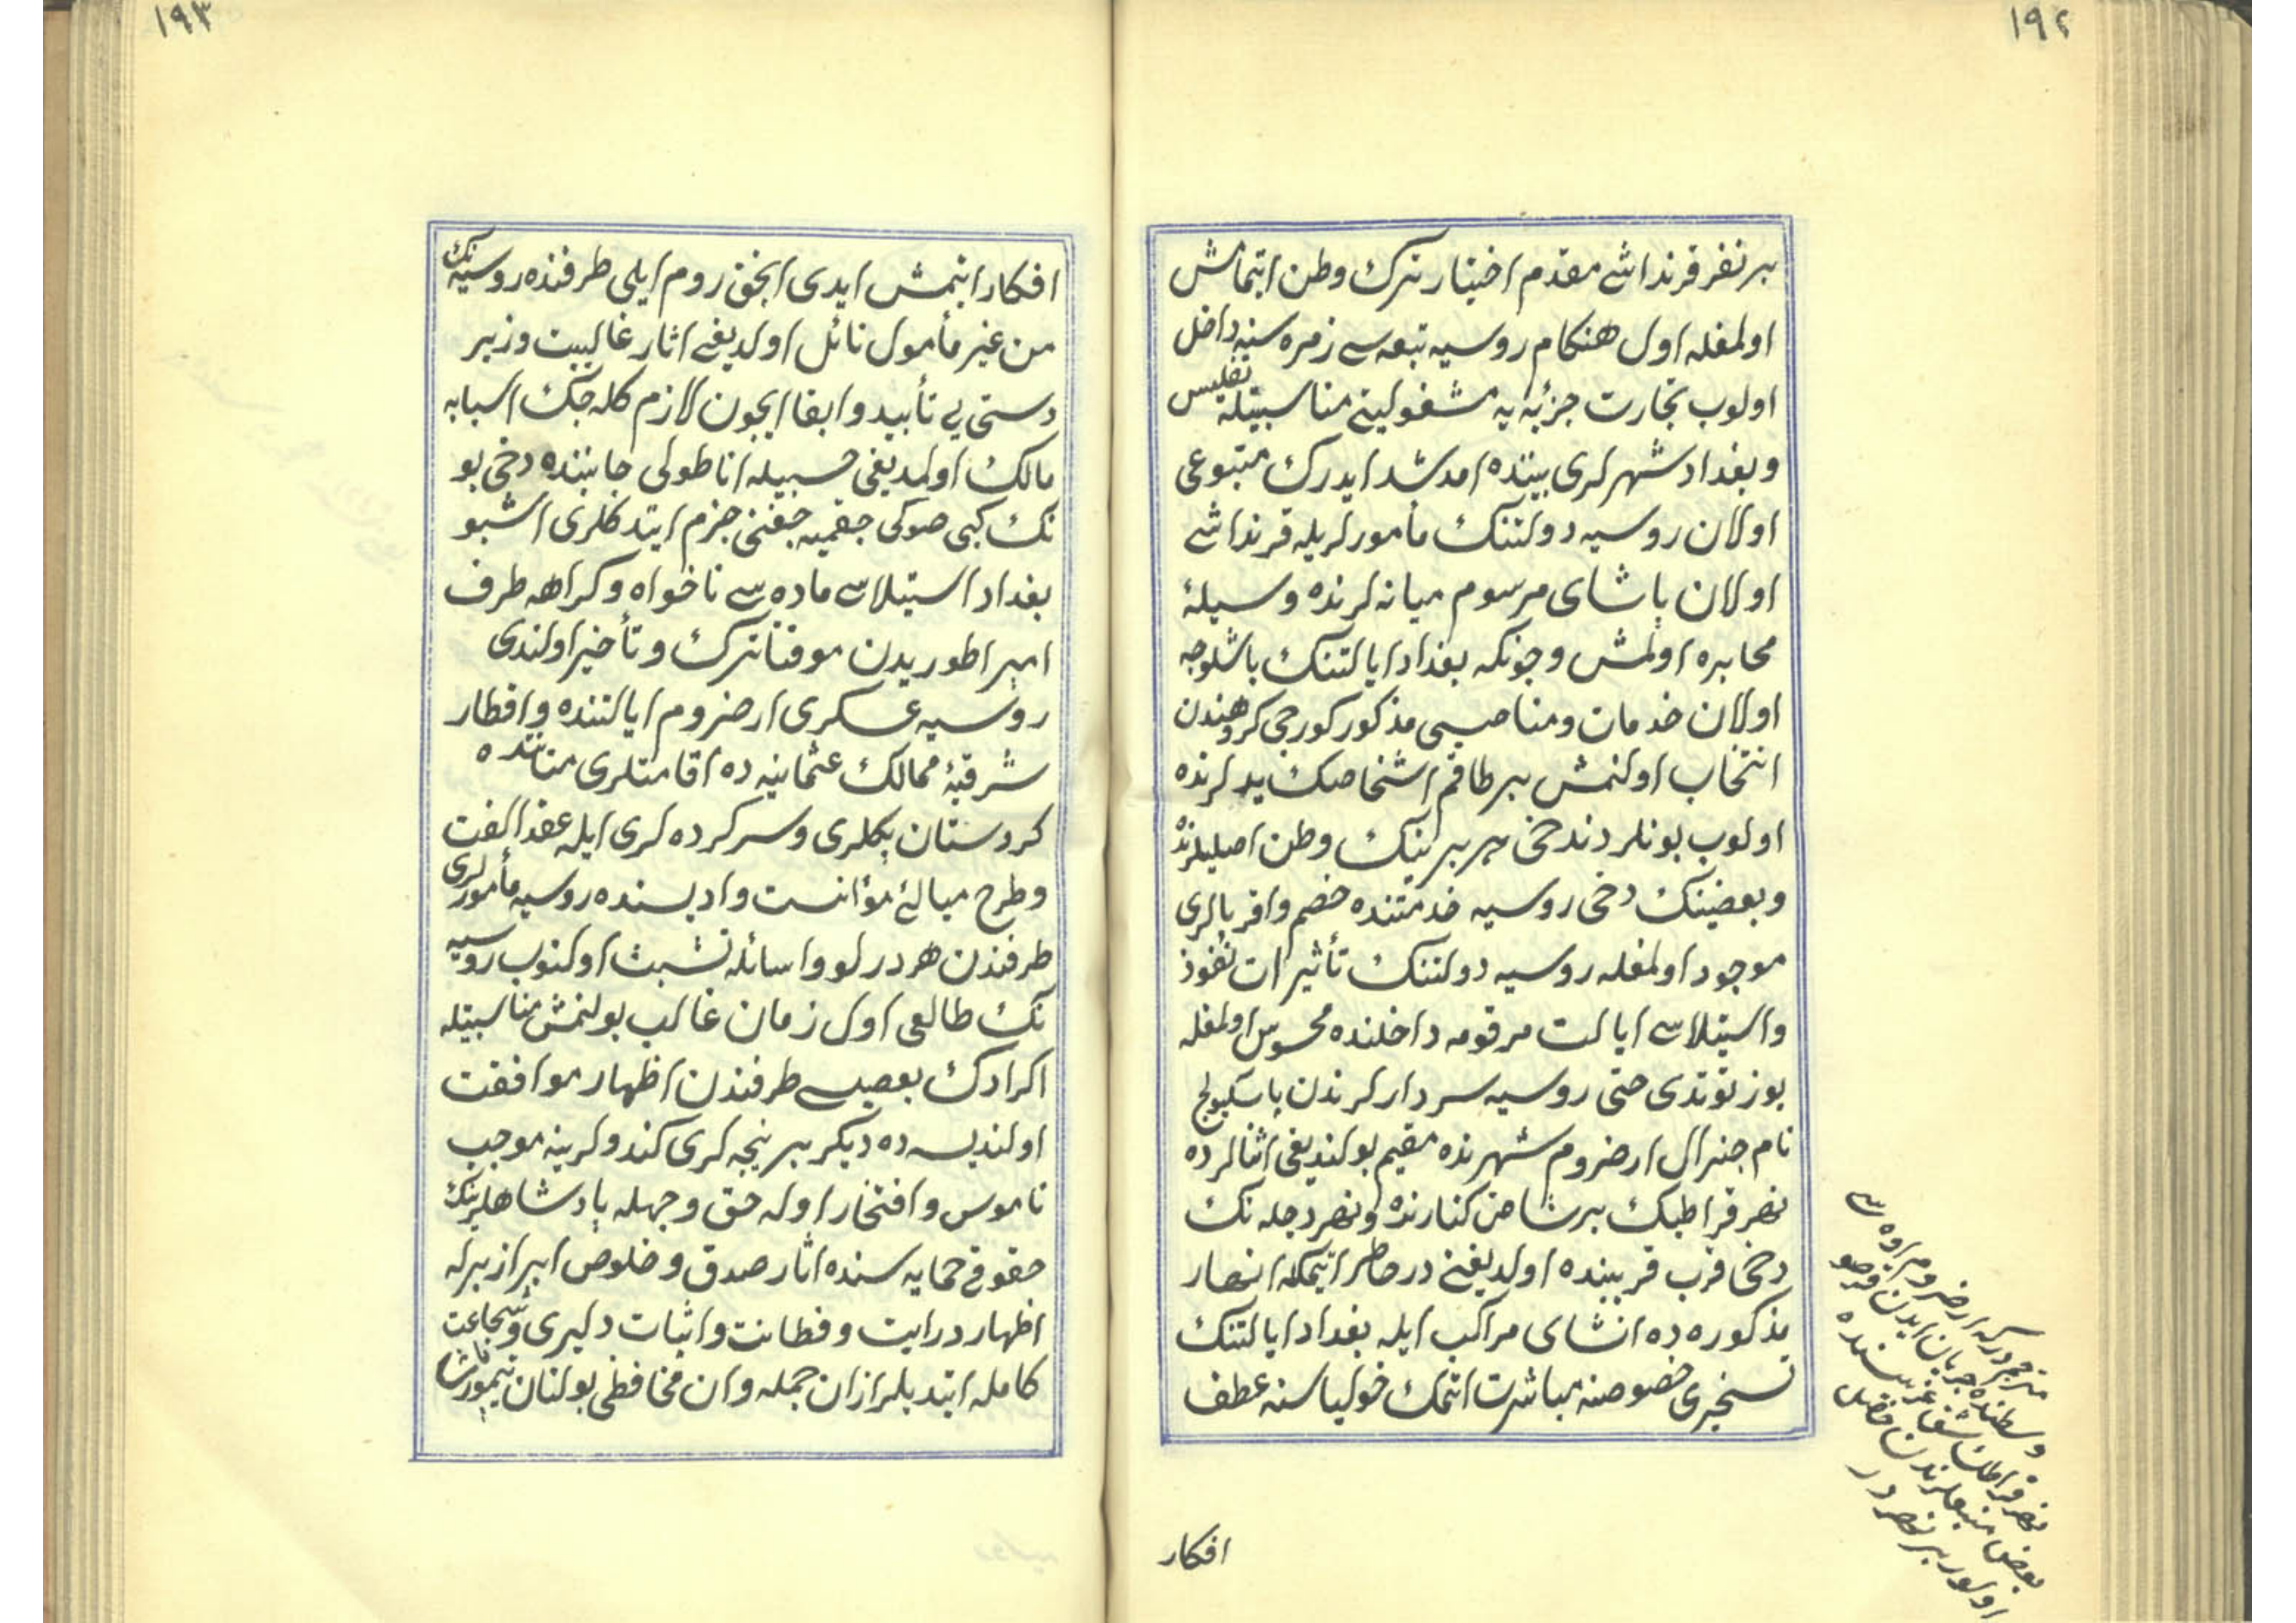 ١٩٢
بر نفر قرنداشی مقدم اختیار ترک وطن اتمامش
اولمغله اول هنکام روسیه تبعه سی زمره سنه داخل
اولوب تجارت جزئیه یه مشغولیتی مناسبتیله تفلیس
وبغداد شهرلری بیننده امدشد ایدرک متبوعی
اولان روسیه دولتنک مأمورلریله قرنداشی
اولان پاشای مرسوم میانه لرنده وسیلهٔ
محابره اولمش وچونکه بغداد ایالتنک باشلوجه
اولان خدمات ومناصبی مذکور کورجی کروهندن
انتخاب اولنمش بر طاقم اشخاصک یدلرنده
اولوب بونلردندخی هر برینک وطن اصلیلرنده
وبعضینک دخی روسیه خدمتنده خصم واقربالری
موجود اولمغله روسیه دولتنک تأثیرات نفوذ
واستیلاسی ایالت مرقومه داخلنده محسوس اولمغله
یوز توتدی حتی روسیه سردارلرندن پاسکیویچ
نام جنرال ارضروم شهرنده مقیم بولندیغی اثنالرده
نهر قراطبک بر شاخن کنارنده ونهر دجله نک
دخی قرب قریبنده اولدیغنی درخاطر اتمکله انهار
مذکوره ده انشای مراکب ایله بغداد ایالتنک
تسخیری خصوصنه مباشرت اتمک خولیاسنه عطف
افکار
مترجم درکه ارضروم اوه سی
وسطنده جریان ایدن قره صو
نهر قراطک شفا غربسنده
بعض منبعلرندن
اولور بر نهر در
١٩٣
افکار اتمش ایدی انجق روم ایلی طرفنده روسیه نک
من غیر مأمول نائل اولدیغی اثار غالبیت وزبر
دستی یی تأبید وابقا ایچون لازم کله جک اسبابه
مالک اولمدیغی حسبیله اناطولی جانبنده دخی بو
نک کبی صوکی چقمیه جغنی جزم ایتدکلری اشبو
بغداد استیلاسی ماده سی ناخواه وکراهه طرف
امپراطوریدن موقتا ترک وتأخیر اولندی
روسیه عسکری ارضروم ایالتنده واقطار
شرقیهٔ ممالک عثمانیه ده اقامتلری متاننده
کردستان بکلری وسرکرده لری ایله عقد الفت
وطرح مبالئ مؤانست وادیسنده روسیه مأمورلری
طرفندن هر درلو وسائله تشبث اولنوب روسیه
نک طالعی اول زمان غالب بولنمش مناسبتیله
اکرادک بعضیسی طرفندن اظهار موافقت
اولندیسه ده دیکر بر نیجه لری کندولرینه موجب
ناموس وافتخار اوله حق وجهله پادشاهلرینک
حقوقی حمایه سنده اثار صدق وخلوص ابرازیرله
اظهار درایت وفطانت واثبات دلیری وشجاعت
کامله ایتدیلر ازان جمله وان محافظی بولنان تیمور پاشا